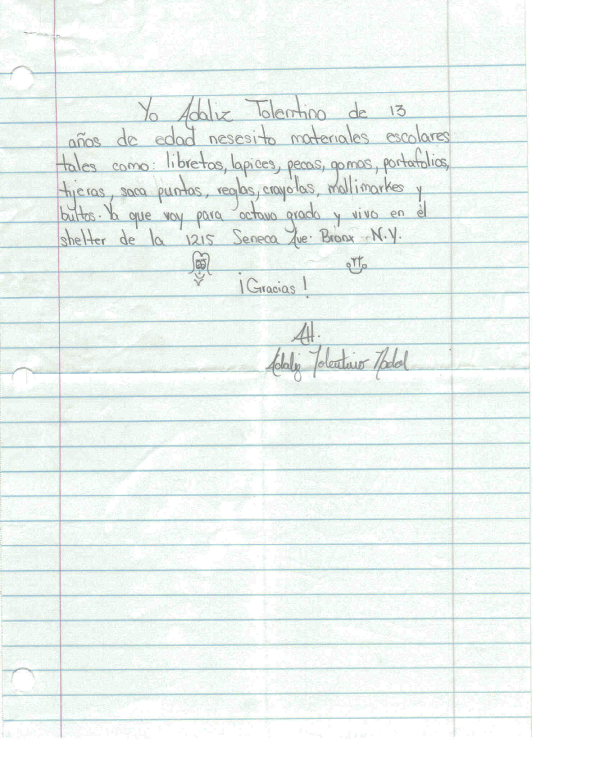 Yo Adaliz Tolentino de 13
años de edad nesesito materiales escolares
tales como: libretas, lapices, pecas, gomas, portafolios,
tijeras, saca puntas, reglas, crayolas, mallimarkes y
bultos. Ya que voy para octavo grado y vivo en el
shelter de la 1215 Seneca Ave. Bronx N.Y.
¡Gracias!
Adaliz Tolentino